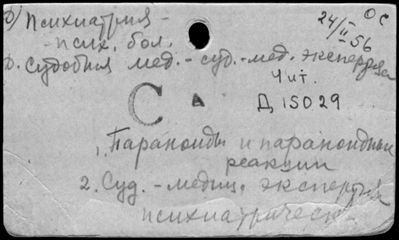 Психиатрия -
- псих. бол.
ОС
24/I
II 56
Д. Судебная мед. - суд.-мед. экспертиза
Чит.
С А
Д 15029
1. Параноиды и параноидные
реакции
2. Суд.-медиц. экспертиза
психиатрическ-